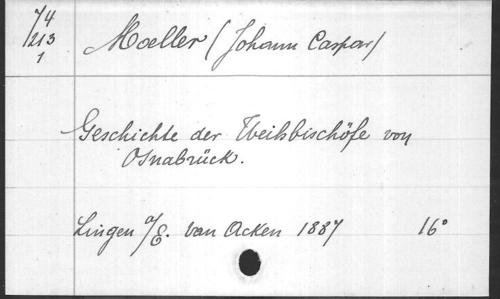 74
213
1
Moeller (Johann Caspar)
Geschichte der Weihbischöfe von
Osnabrück.
Lingen a/E. van Acken 1887 16°